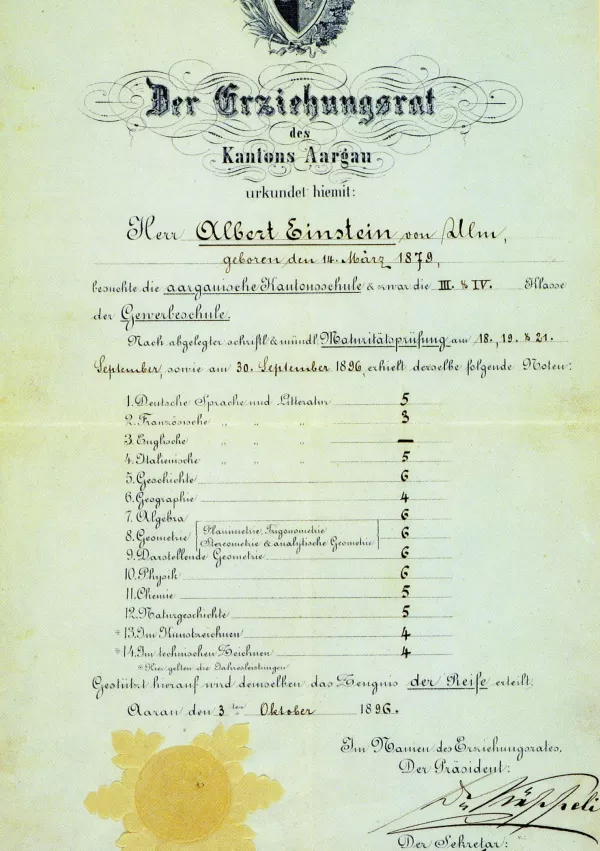 Der Erziehungsrat
des
Kantons Aargau
urkundet hiemit:
Herr Albert Einstein von Ulm,
geboren den 14. März 1879,
besuchte die aargauische Kantonsschule & zwar die III. & IV. Klasse
der Gewerbeschule.
Nach abgelegter schriftl. & mündl. Maturitätsprüfung am 18., 19. & 21.
September, sowie am 30. September 1896, erhielt derselbe folgende Noten:
1. Deutsche Sprache und Litteratur 5
2. Französische " " " 3
3. Englische " " " —
4. Italienische " " " 5
5. Geschichte 6
6. Geographie 4
7. Algebra 6
8. Geometrie [Planimetrie, Trigonometrie 6
Stereometrie & analytische Geometrie]
9. Darstellende Geometrie 6
10. Physik 6
11. Chemie 5
12. Naturgeschichte 5
*13. Im Kunstzeichnen 4
*14. Im technischen Zeichnen 4
*Hier gelten die Jahresleistungen
Gestützt hierauf wird demselben das Zeugnis der Reife erteilt.
Aarau den 3ten Oktober 1896.
Im Namen des Erziehungsrates,
Der Präsident:
Dr. Käppeli
Der Sekretär: